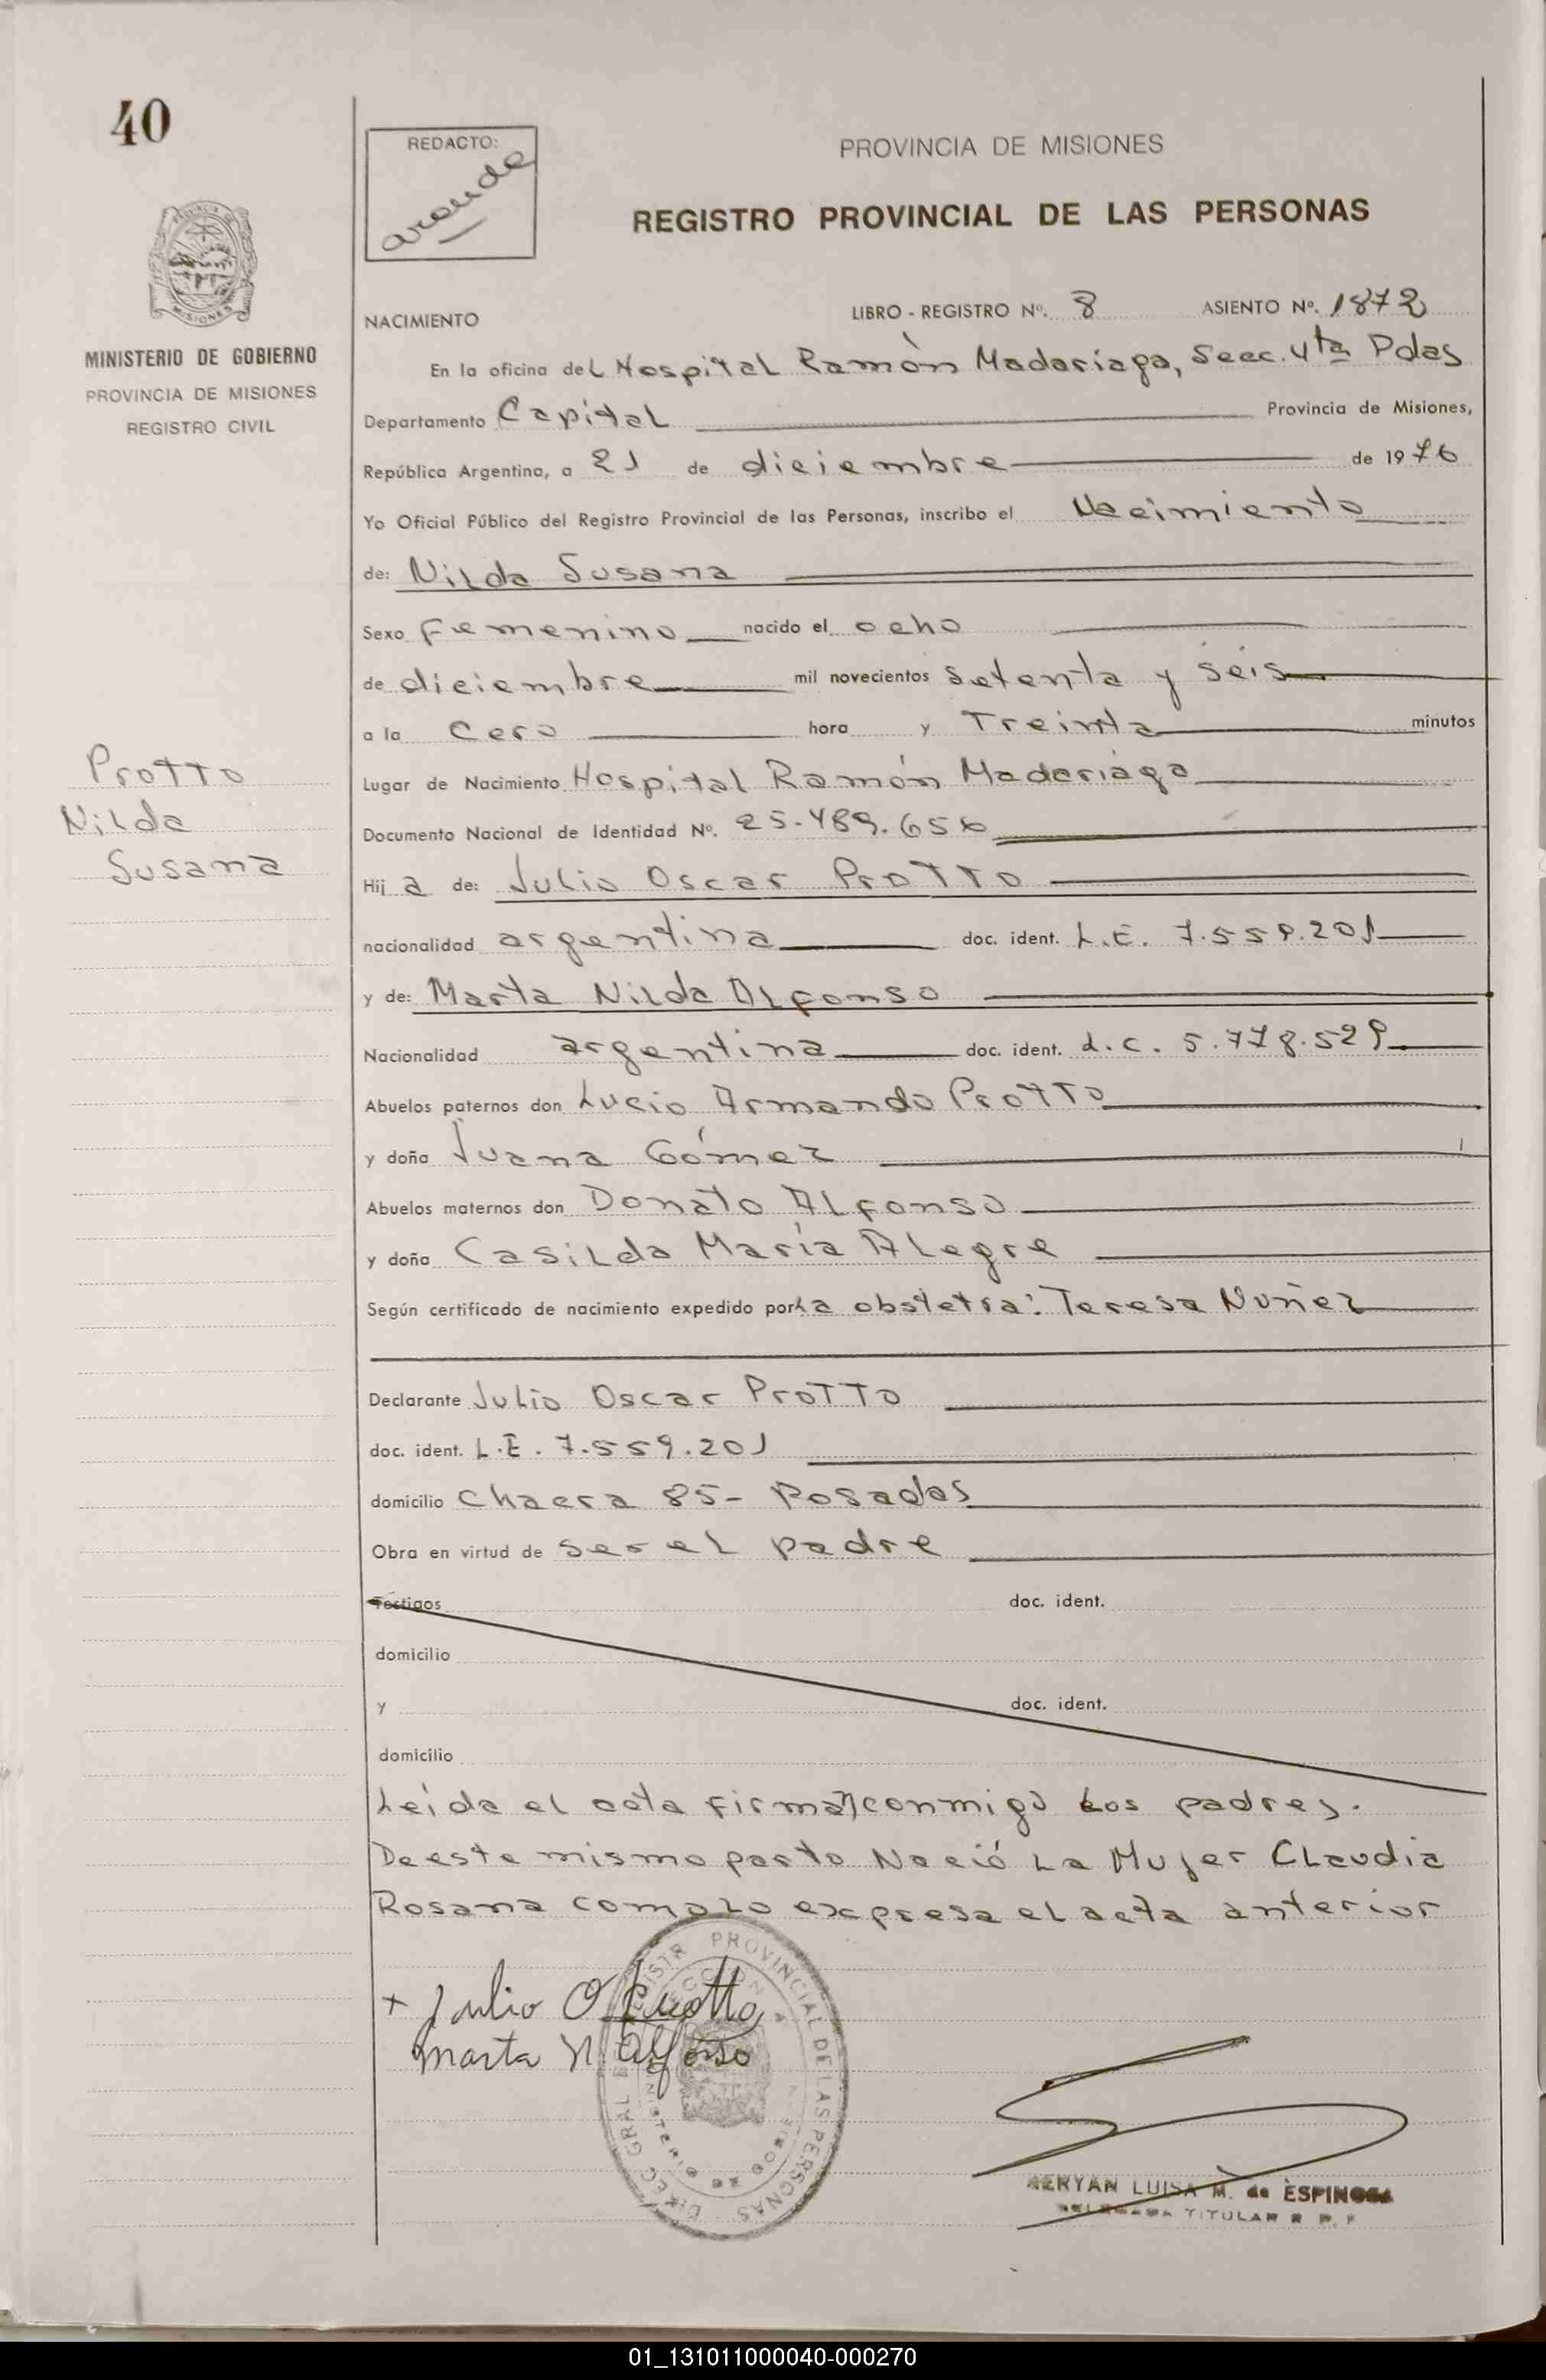 40
REDACTO:
PROVINCIA DE MISIONES
REGISTRO PROVINCIAL DE LAS PERSONAS
MISIONES
MINISTERIO DE GOBIERNO
PROVINCIA DE MISIONES
REGISTRO CIVIL
NACIMIENTO LIBRO - REGISTRO Nº. 8 ASIENTO Nº. 1872
En la oficina del Hospital Ramòn Madariaga, Secc. 4ta Pdas
Departamento Capital Provincia de Misiones,
República Argentina, a 21 de diciembre de 1976
Yo Oficial Público del Registro Provincial de las Personas, inscribo el Nacimiento
de: Nilda Susana
Sexo Femenino nacido el ocho
de diciembre mil novecientos setenta y seis
a la cero hora y Treinta minutos
Protto
Nilda
Susana
Lugar de Nacimiento Hospital Ramón Madariaga
Documento Nacional de Identidad Nº. 25.489.656
Hij a de: Julio Oscar ProTTo
nacionalidad argentina doc. ident. L.E. 7.559.201
y de: Marta Nilda Alfonso
Nacionalidad argentina doc. ident. L.C. 5.778.529
Abuelos paternos don Lucio Armando ProTTo
y doña Juana Gómez
Abuelos maternos don Donato Alfonso
y doña Casilda María Alegre
Según certificado de nacimiento expedido por La obstetra: Teresa Nuñez
Declarante Julio Oscar ProTTo
doc. ident. L.E. 7.559.201
domicilio Chacra 85- Posadas
Obra en virtud de ser el padre
Testigos doc. ident.
domicilio
y doc. ident.
domicilio
Leída el acta firman conmigo Los padres.
De este mismo parto Nació La Mujer Claudia
Rosana como Lo expresa el acta anterior
+ Julio O Protto
Marta N Alfonso
DIREC GRAL REGISTR PROVINCIAL DE LAS PERSONAS
LUISA M. de ESPINOSA
TITULAR R P P
01_131011000040-000270